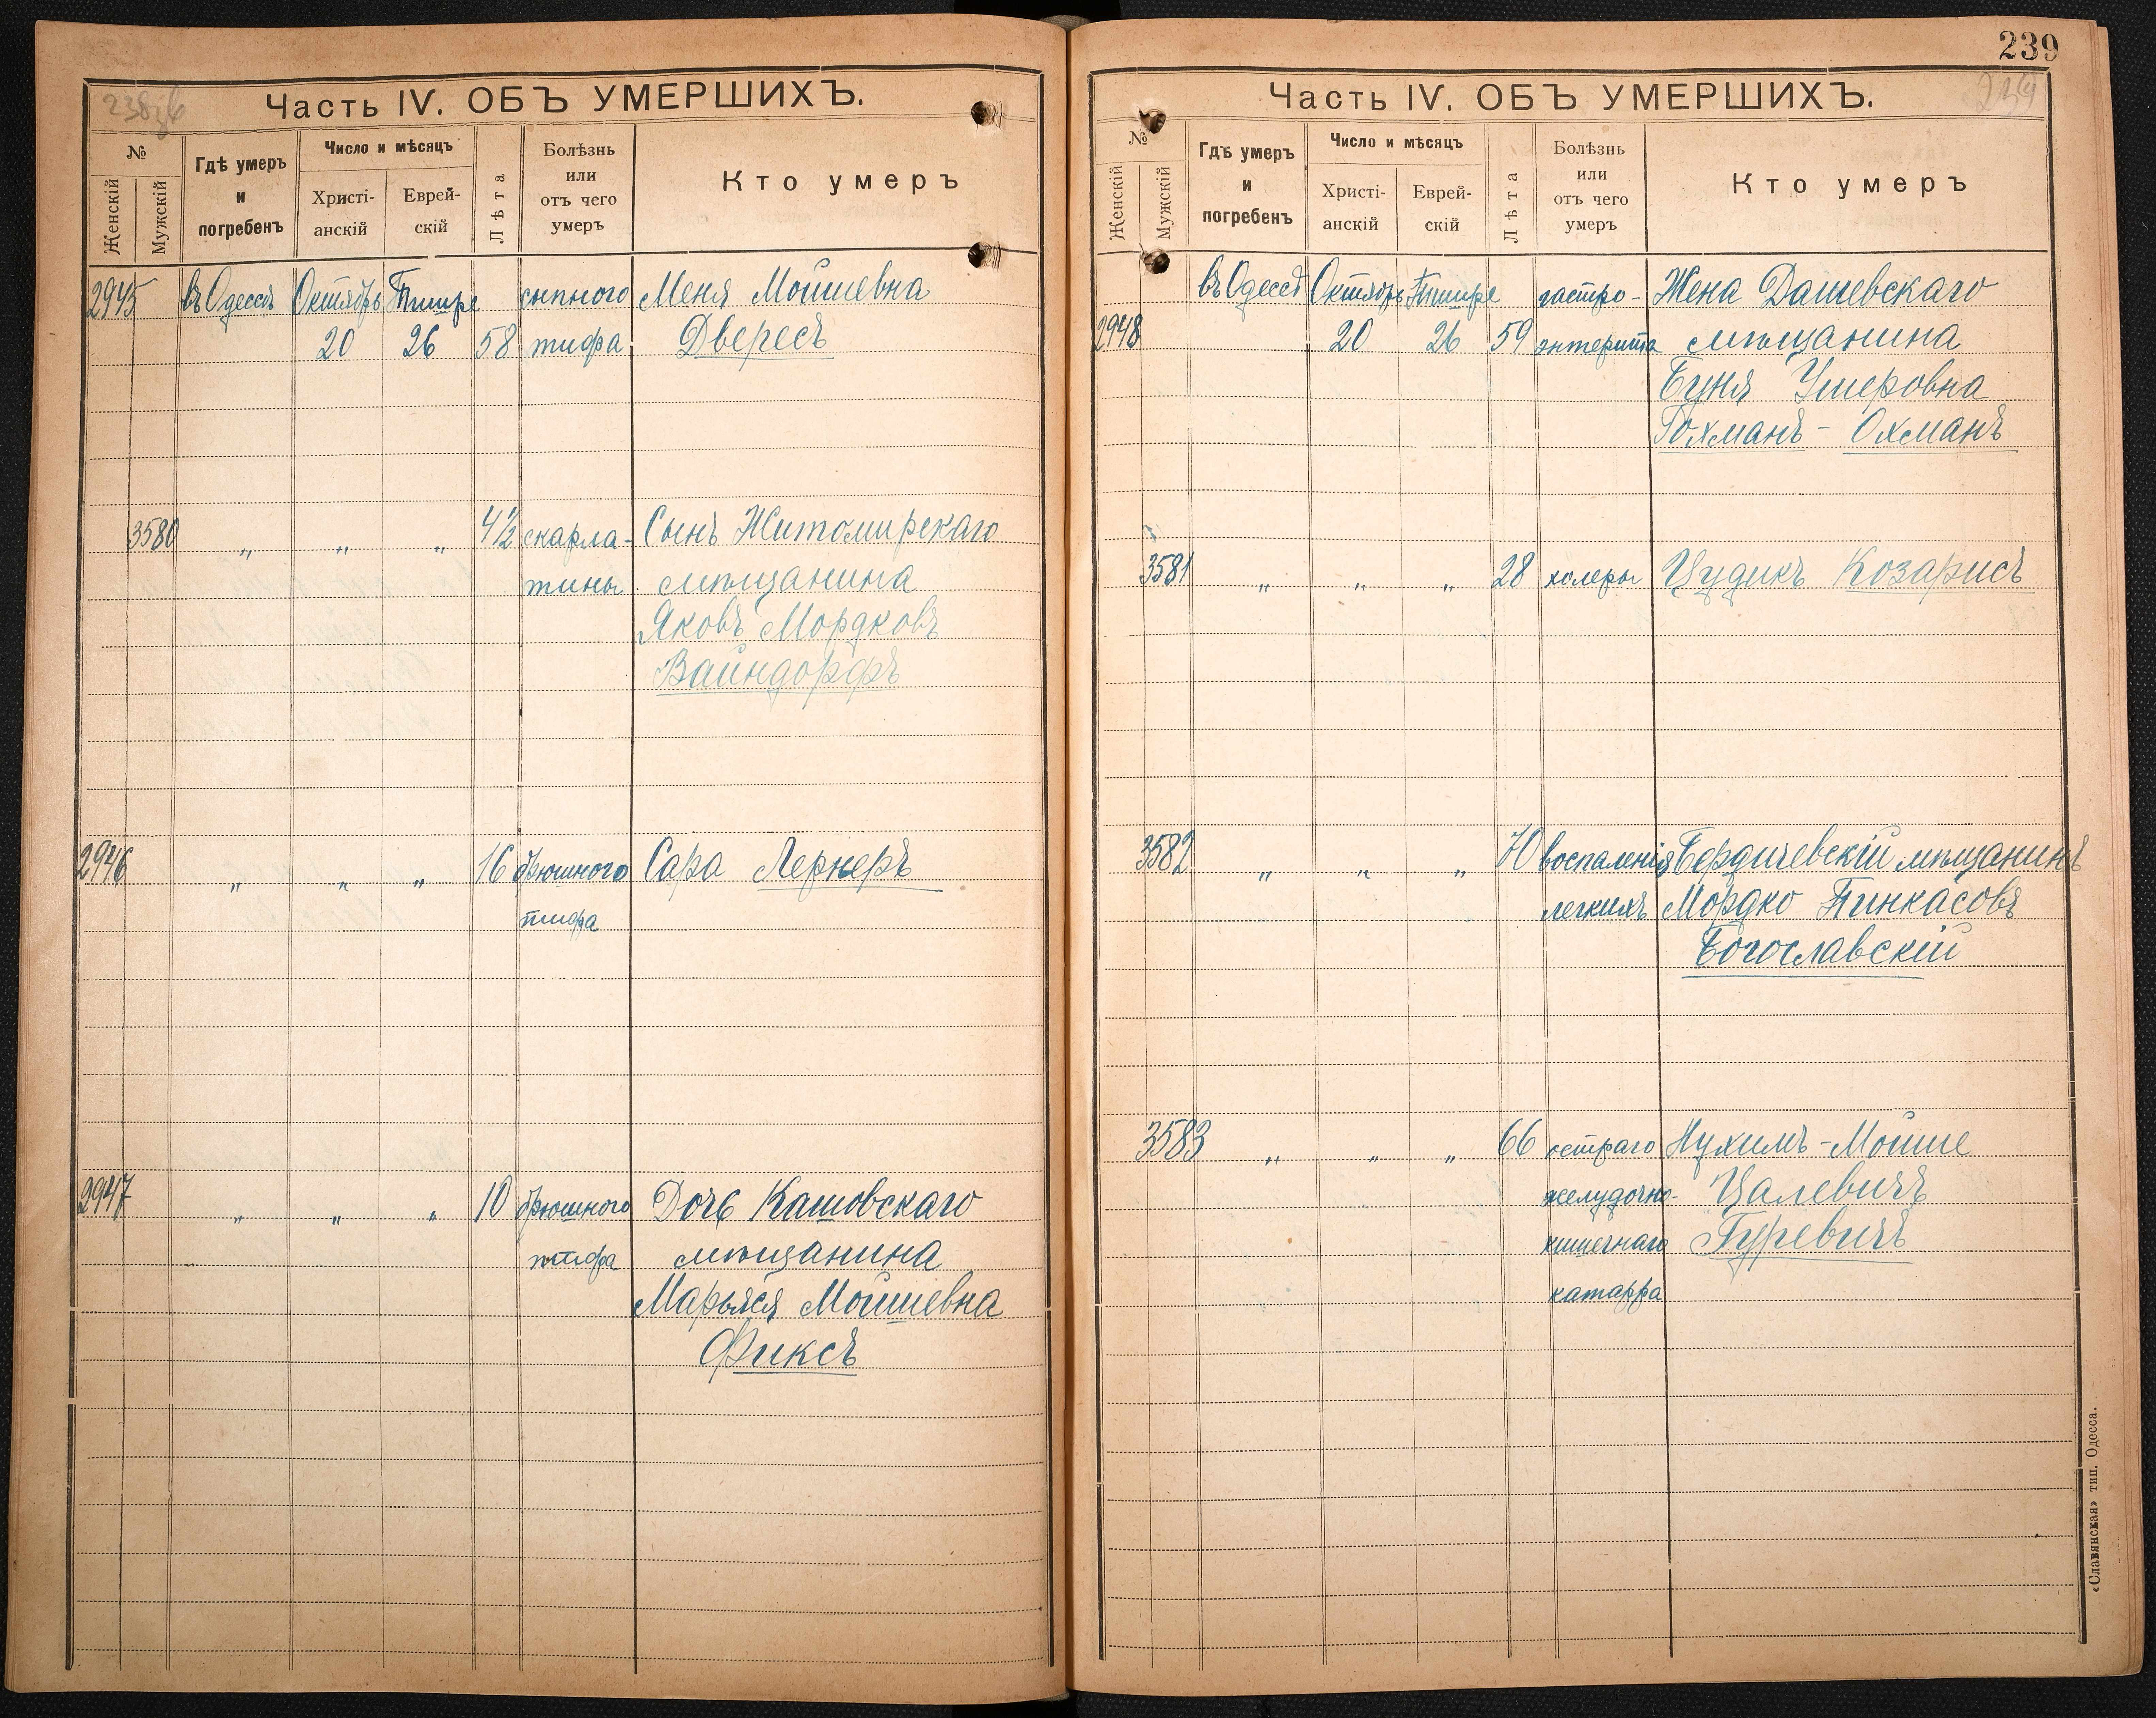 Часть IV. ОБЪ УМЕРШИХЪ.
№
Женскій
Мужскій
Гдѣ умеръ
и
погребенъ
Число и мѣсяцъ
Христі-
анскій
Еврей-
скій
Лѣта
Болѣзнь
или
отъ чего
умеръ
Кто умеръ
2945 въ Одессѣ Октябрь Тишре сыпного Меня Мошиевна
20 26 58 тифа Двересъ
3580 „ „ „ 4½ скарла- Сынъ Житомирскаго
тины мѣщанина
Яковъ Мордковъ
Вайндорфъ
2946 „ „ „ 16 брюшного Сара Лернеръ
тифа
2947 „ „ „ 10 брюшного Дочь Кашовскаго
тифа мѣщанина
Марьяся Мошиевна
Фиксъ
239
239
Часть IV. ОБЪ УМЕРШИХЪ.
№
Женскій
Мужскій
Гдѣ умеръ
и
погребенъ
Число и мѣсяцъ
Христі-
анскій
Еврей-
скій
Лѣта
Болѣзнь
или
отъ чего
умеръ
Кто умеръ
въ Одессѣ Октябрь Тишре гастро- Жена Дашевскаго
2948 20 26 59 энтерита мѣщанина
Буня Ушеровна
Гохманъ - Охманъ
3581 „ „ „ 28 холеры Цудикъ Козарисъ
3582 „ „ „ 70 воспаленія Бердичевскій мѣщанинъ
легкихъ Мордко Пинкасовъ
Богославскій
3583 „ „ „ 66 остраго Нухимъ-Мойше
желудочно- Цалевичъ
кишечнаго Гуревичъ
катарра
«Славянская» тип. Одесса.